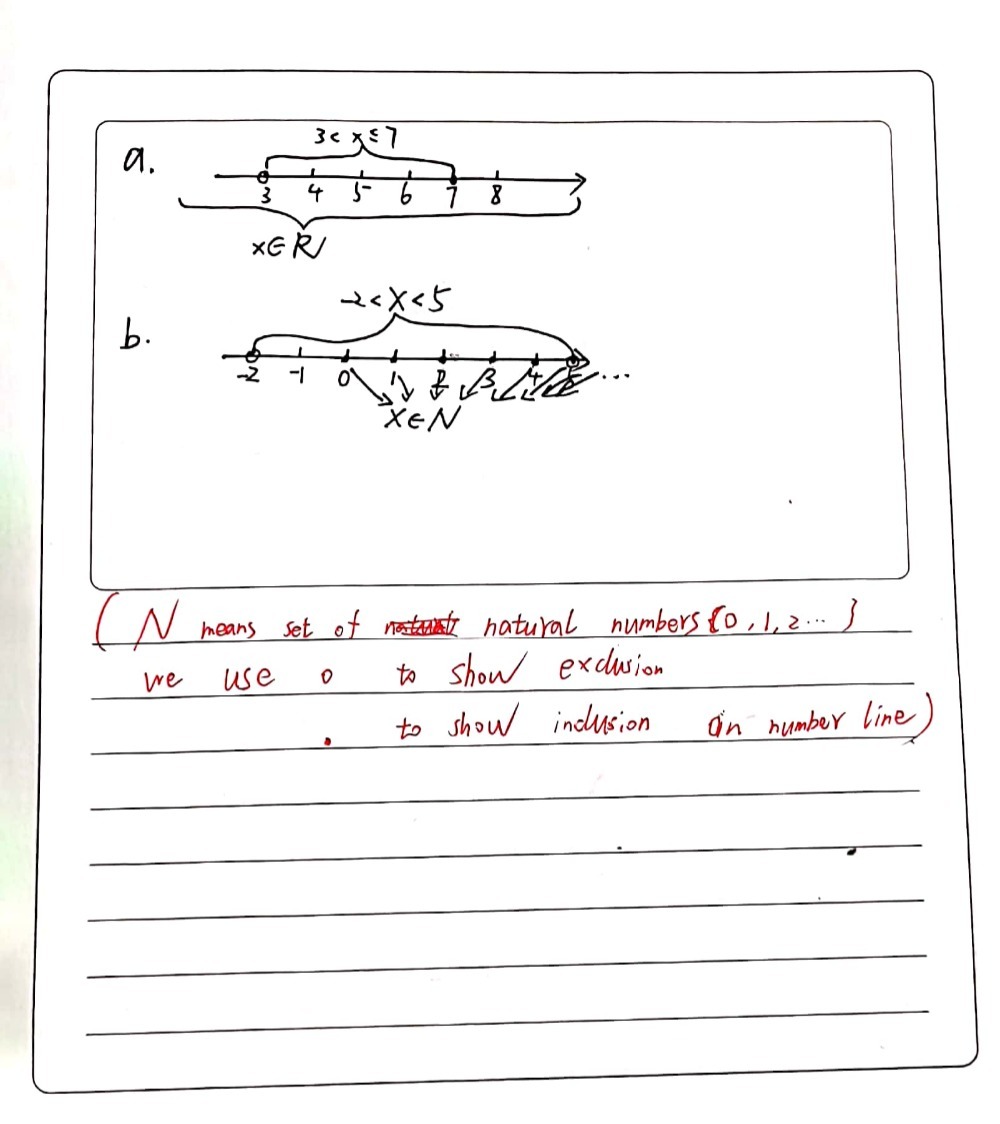 a.
3 < x ≤ 7
3 4 5 6 7 8
x ∈ R
b.
-2 < x < 5
-2 -1 0 1 2 3 4 5 ...
x ∈ N
( N means set of natural numbers {0, 1, 2 ... }
we use o to show exclusion
. to show inclusion on number line)